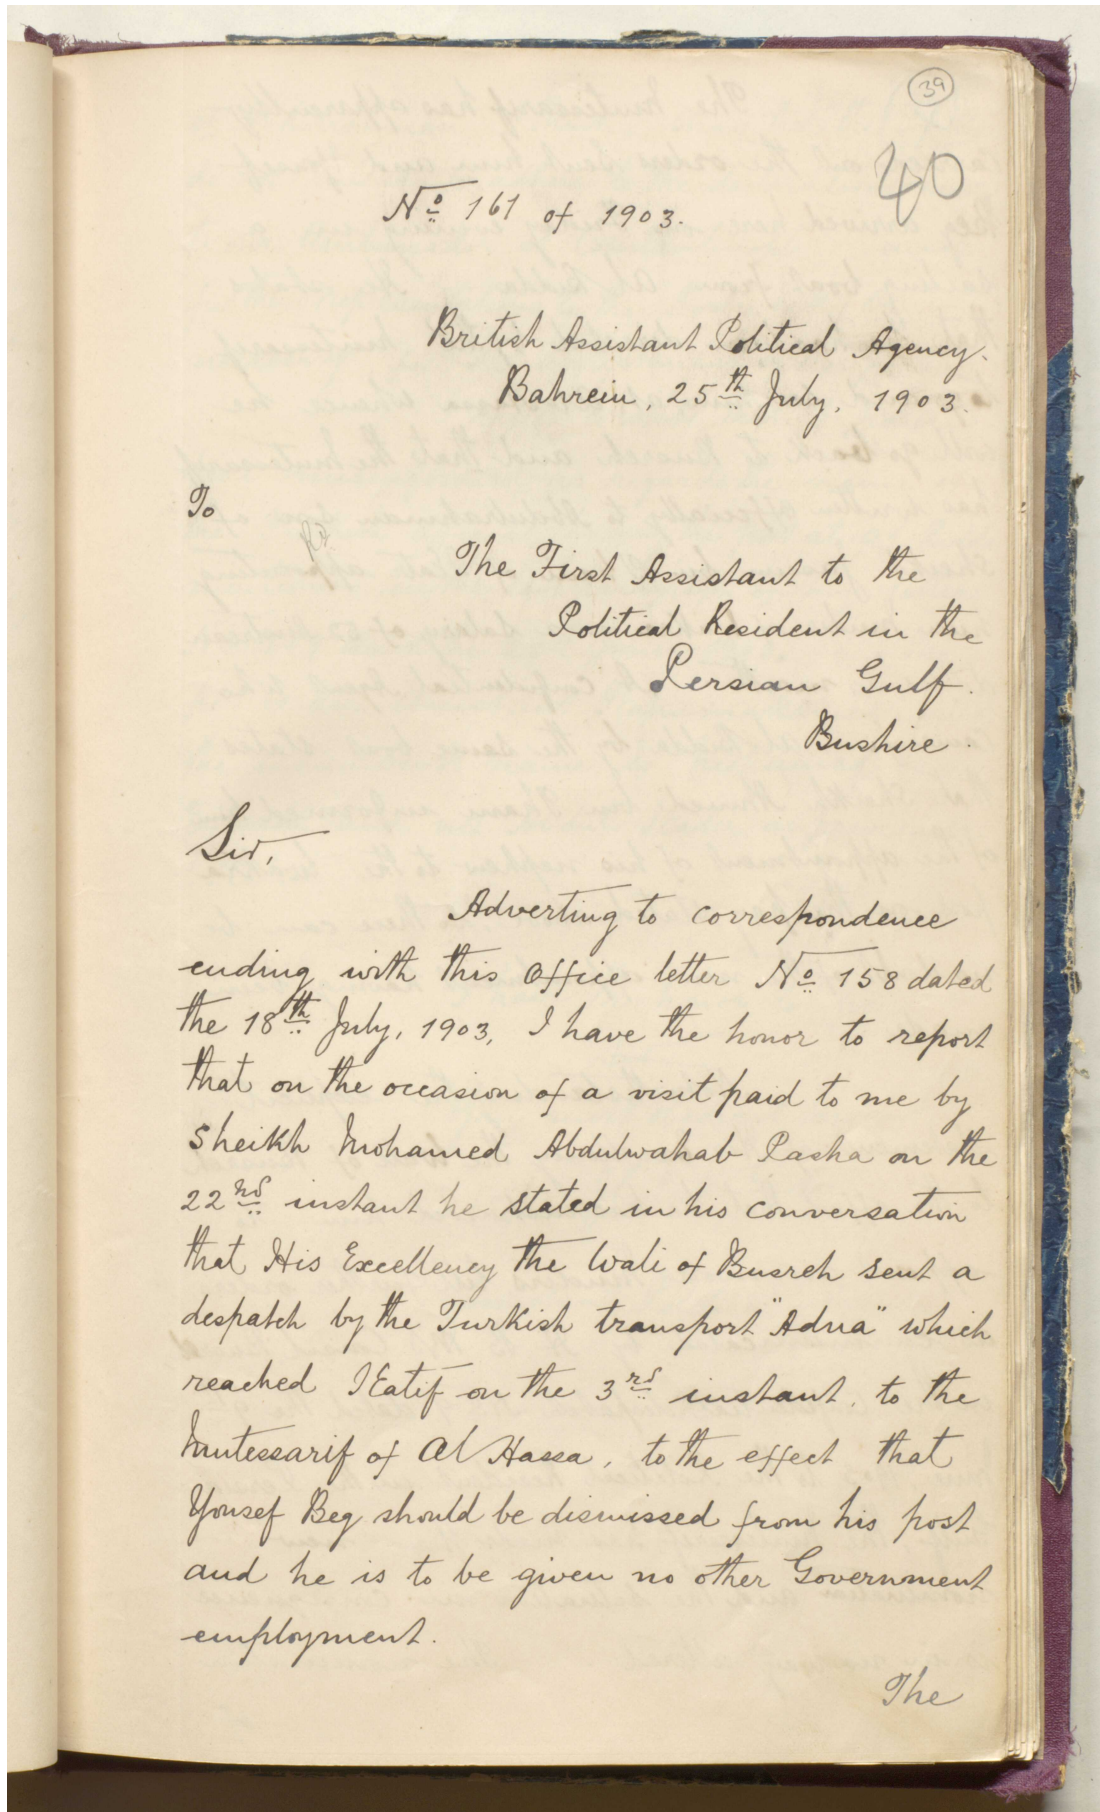 39
40
No 161 of 1903.
British Assistant Political Agency.
Bahrein, 25th July, 1903.
To
The First Assistant to the
Political Resident in the
Persian Gulf.
Bushire.
Sir,
Adverting to correspondence
ending with this Office letter No 158 dated
the 18th July, 1903, I have the honor to report
that on the occasion of a visit paid to me by
Sheikh Mohamed Abdulwahab Pasha on the
22nd instant he stated in his conversation
that His Excellency the Wali of Busreh sent a
despatch by the Turkish transport "Adna" which
reached Katif on the 3rd instant, to the
Mutessarif of Al Hassa, to the effect that
Yousef Beg should be dismissed from his post
and he is to be given no other Government
employment.
The